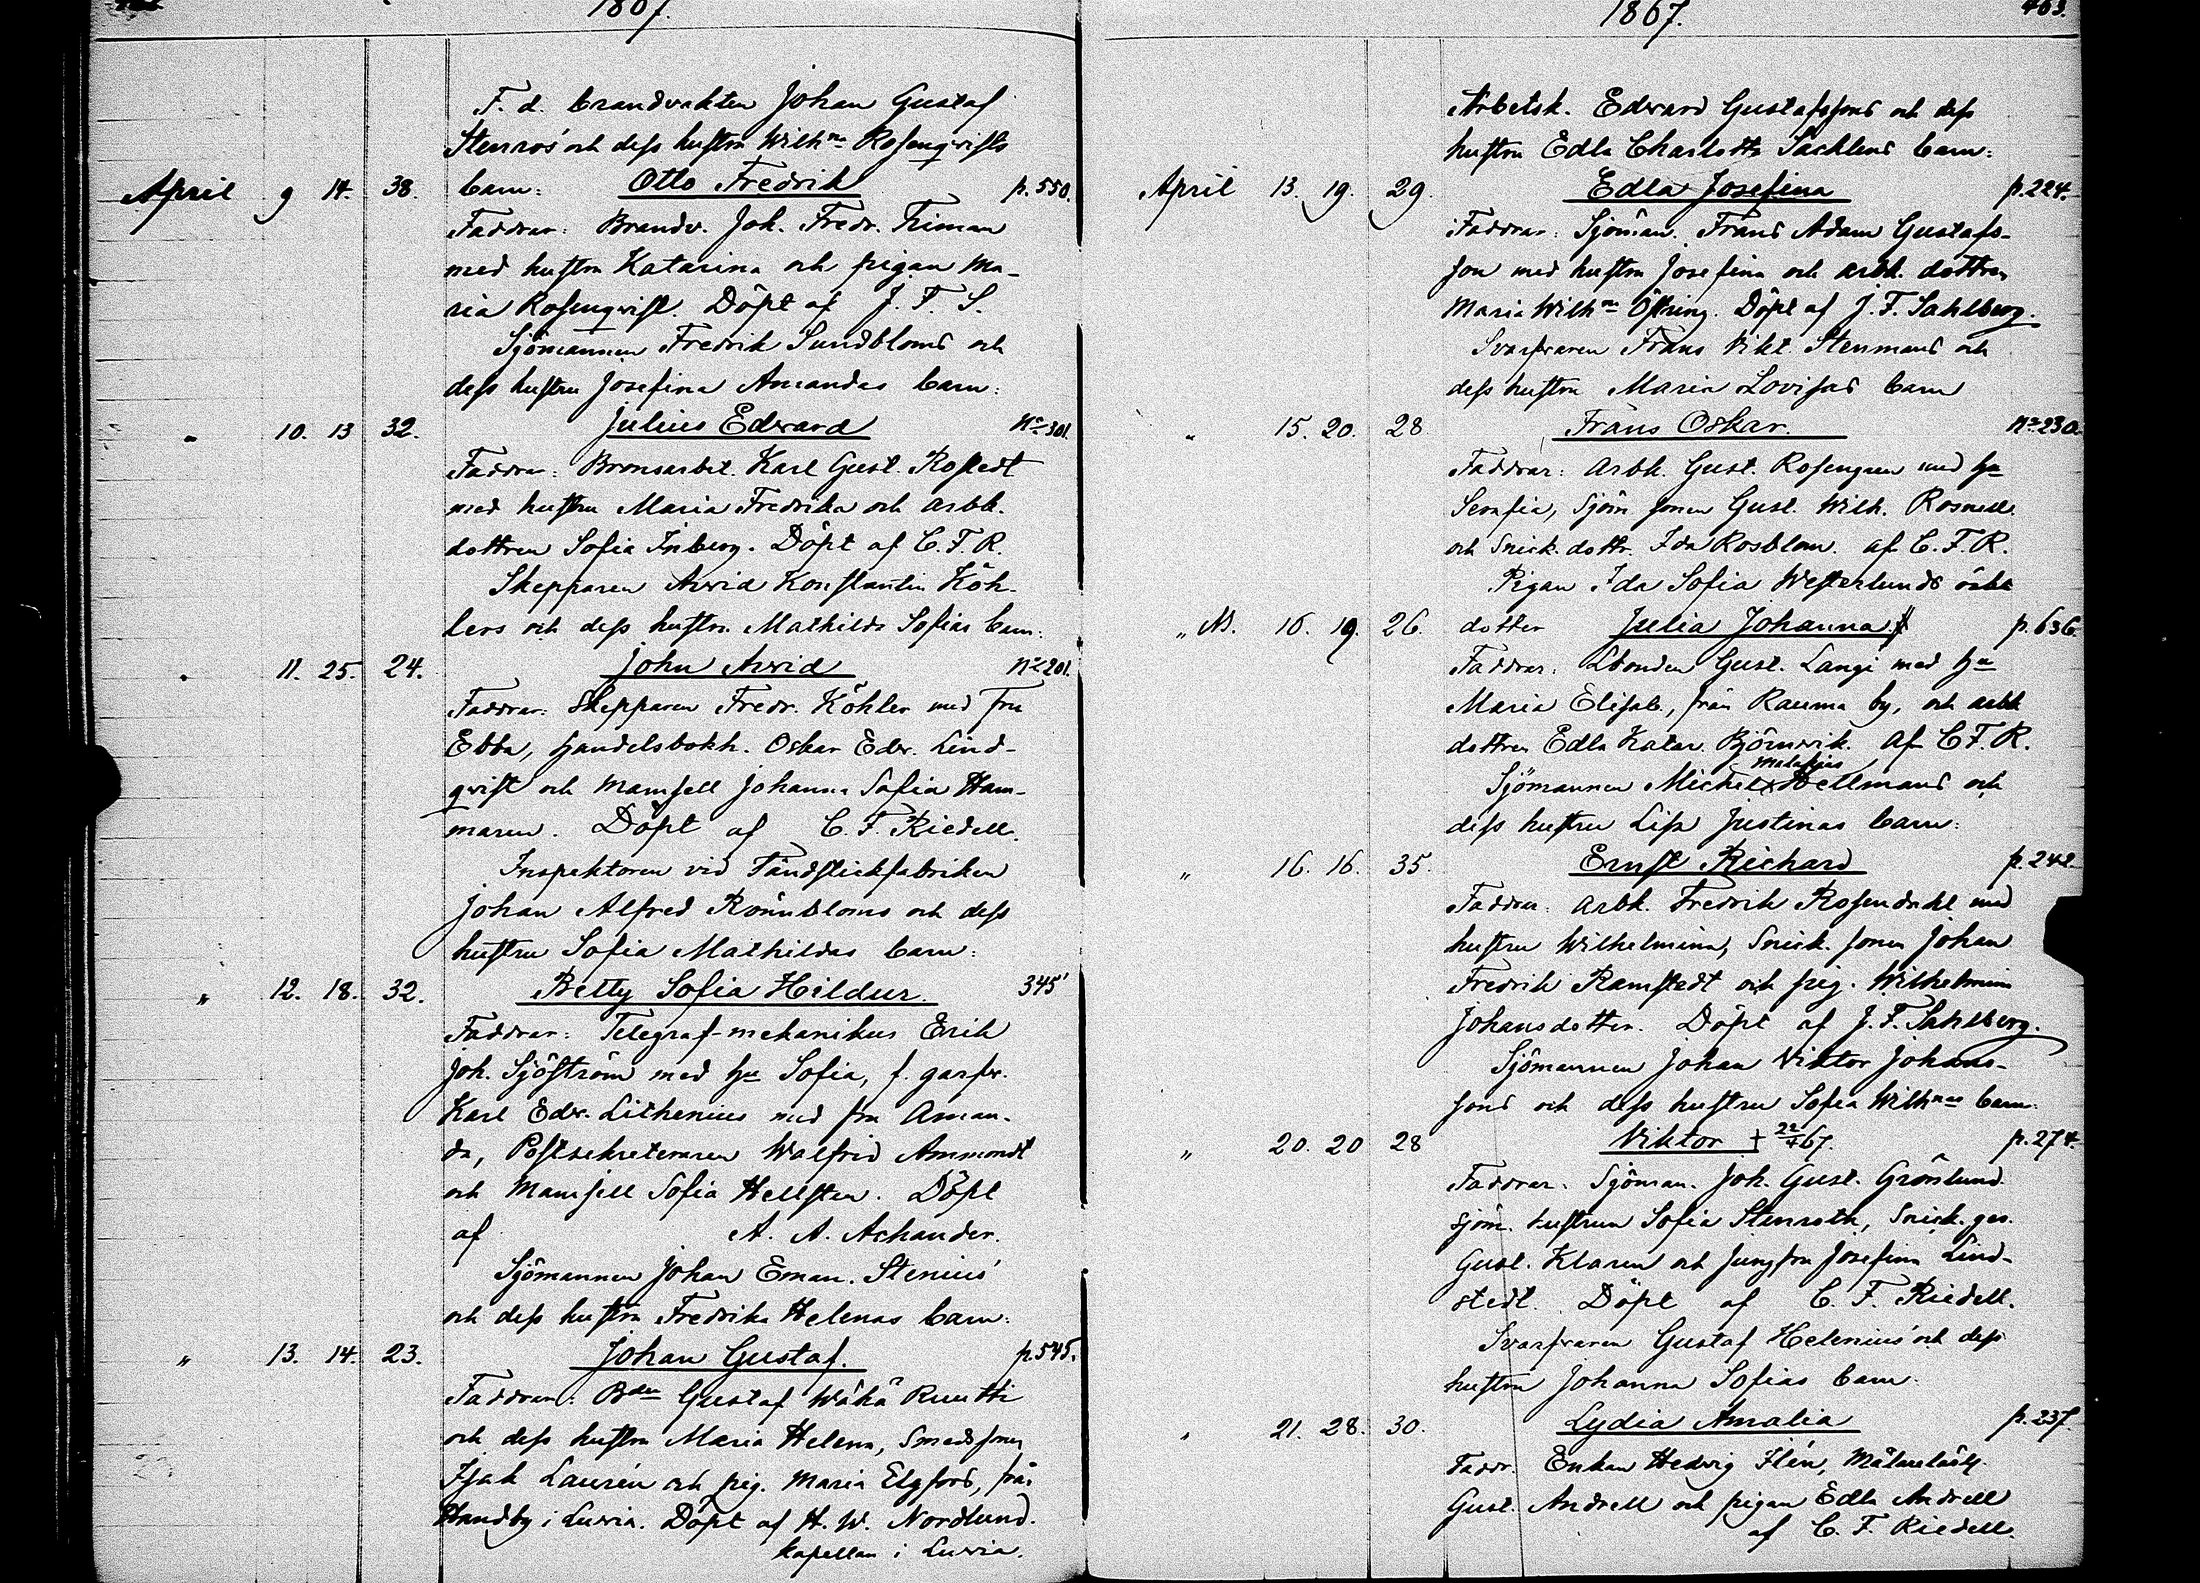 1867.
F. d. brandvakten Johan Gustaf
Stenros' och dess hustru Wilhna Rosenqvists
April 9 14. 38. barn: Otto Fredrik p. 550.
Faddrar: Brandv. Joh. Fredr. Timan
med hustru Katarina och pigan Ma-
ria Rosenqvist. Döpt af J. F. S.
Sjömannen Fredrik Sundbloms och
dess hustru Josefina Amandas barn:
" 10. 13 32. Julius Edvard No 301.
Faddrar: Bronsarbet. Karl Gust. Rostedt
med hustru Maria Fredrika och arbk.
dottren Sofia Inberg. Döpt af C. F. R.
Skepparen Arvid Konstantin Köh-
lers och dess hustru Mathilda Sofias barn:
" 11. 25. 24. John Arvid No 201.
Faddrar: Skepparen Fredr. Köhler med fru
Ebba, handelsbokh. Oskar Edv. Lind-
qvist och mamsell Johanna Sofia Ham-
marén. Döpt af C. F. Riedell.
Inspektoren vid Tändstickfabriken
Johan Alfred Rönnbloms och dess
hustru Sofia Mathildas barn:
" 12. 18. 32. Betty Sofia Hildur. 345'
Faddrar: Telegraf-mekanikus Erik
Joh. Sjöström med hu Sofia, f. garfv.
Karl Edv. Lithenius med fru Aman-
da, Postsekreteraren Walfrid Ammondt
och Mamsell Sofia Hellsten. Döpt
af A. A. Achander.
Sjömannen Johan Eman. Stenius'
och dess hustru Fredrika Helenas barn:
" 13. 14. 23. Johan Gustaf. p. 545.
Faddrar: Bden Gustaf Wähä Ruutti
och dess hustru Maria Helena, Smedsonen
Isak Laurén och pig. Maria Elgfors, från
Handby i Luvia. Döpt af H. W. Nordlund.
kapellan i Luvia.
1867. 463.
Arbetsk. Edvard Gustafssons och dess
hustru Edla Charlotta Sacklens barn:
April 13. 19. 29. Edla Josefina p. 224.
Faddrar: Sjöman. Frans Adam Gustafs-
son med hustru Josefina och arbk. dottren
Maria Wilhna Östring. Döpt af J. F. Sahlberg.
Svarfvaren Frans Vikt. Stenmans och
dess hustru Maria Lovisas barn
" 15. 20. 28 Frans Oskar. No 230.
Faddrar: Arbk. Gust. Rosengren med hu
Serafia, Sjöm. sonen Gust. Wilh. Rosnell
och Snick. dottr. Ida Rosblom. af C. F. R.
Pigan Ida Sofia Westerlunds oäkta
" N. 16. 19. 26. dotter Julia Johanna p. 636.
Faddrar: Lbonden Gust. Langi med hu
Maria Elisab., från Rauma by, och arbk
dottren Edla Katar. Björnvik. af C. F. R.
Sjömannen Michel Matafias Hellmans och
dess hustru Lisa Justinas barn:
" 16. 16. 35. Ernst Richard p. 242.
Faddrar: Arbk. Fredrik Rosendahl med
hustru Wilhelmina, Snick. sonen Johan
Fredrik Ramstedt och pig. Wilhelmina
Johansdotter. Döpt af J. F. Sahlberg.
Sjömannen Johan Viktor Johans-
sons och dess hustru Sofia Wilhnas barn:
" 20. 20 28 Viktor † 22/4 67. p. 274.
Faddrar: Sjöman. Joh. Gust. Grönlund.
Sjöm. hustrun Sofia Stenroth, Snick. ges.
Gust. Klaren och Jungfru Josefina Lind-
stedt. Döpt af C. F. Riedell.
Svarfvaren Gustaf Helenius' och dess
hustru Johanna Sofias barn:
" 21. 28. 30. Lydia Amalia p. 237.
Faddr. Enkan Hedvig Ilén,
Gust. Andrell och pigan Edla Andrell
af C. F. Riedell.